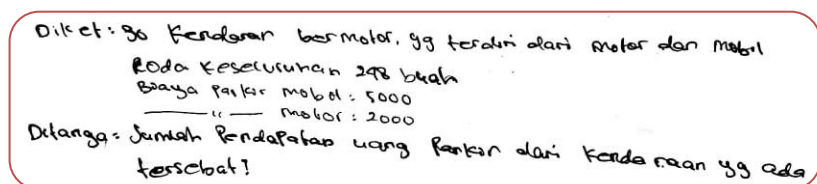 Diket: 90 Kendaraan bermotor, yg terdiri dari motor dan mobil
Roda keseluruhan 248 buah
Biaya Parkir mobol: 5000
—— " —— motor: 2000
Ditanya: Jumlah Pendapatan uang Parkir dari kendaraan yg ada
tersebat?